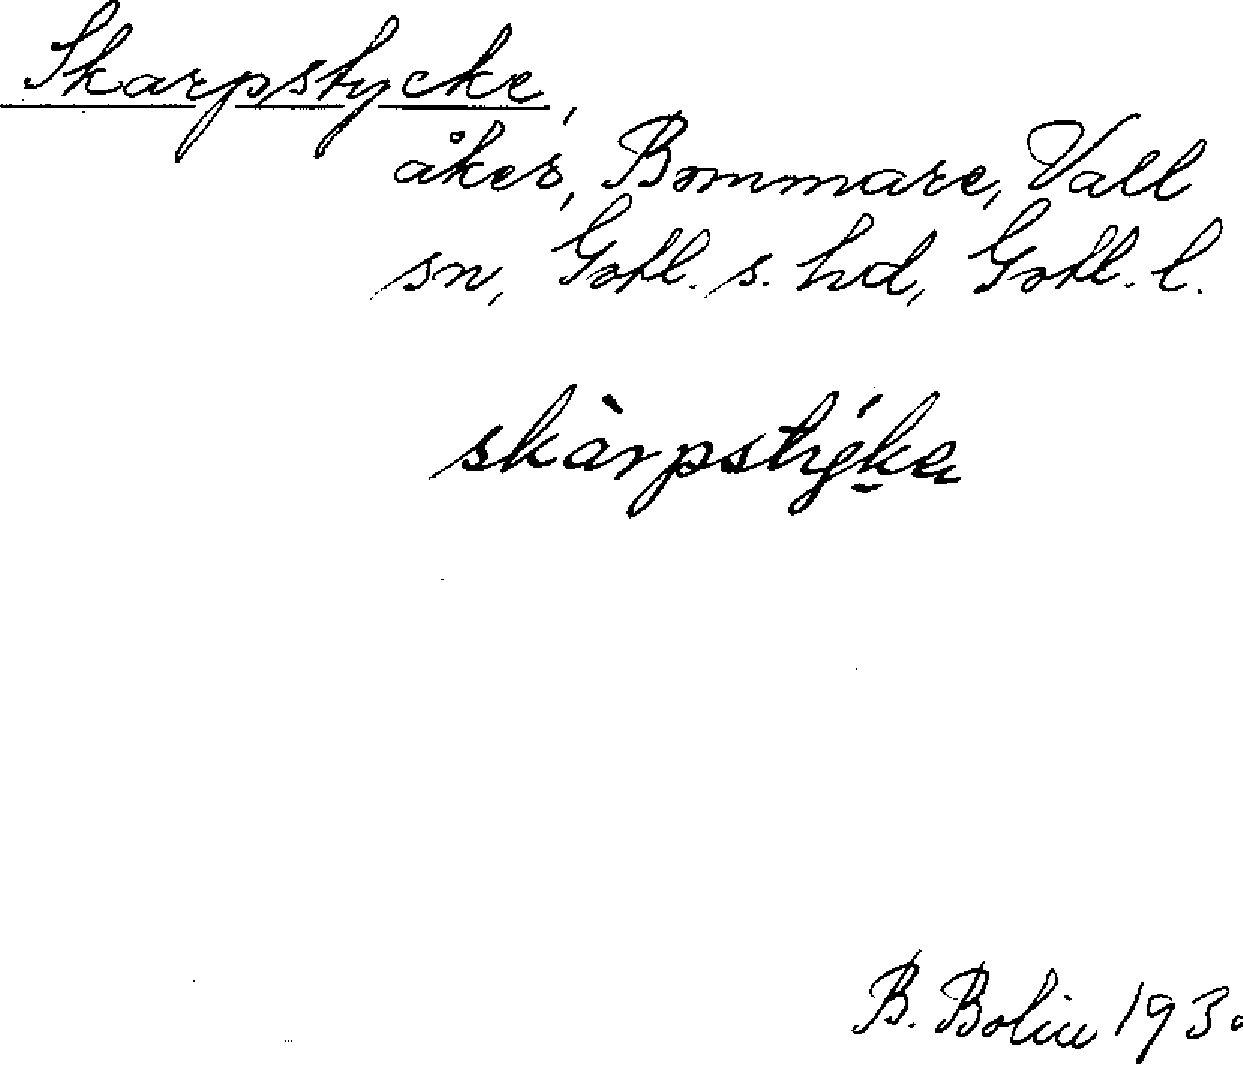 Skarpstycke,
åker, Bommare, Vall
sn, Gotl. s. hd, Gotl. l.
skàrpstýka
B. Bolin 1930